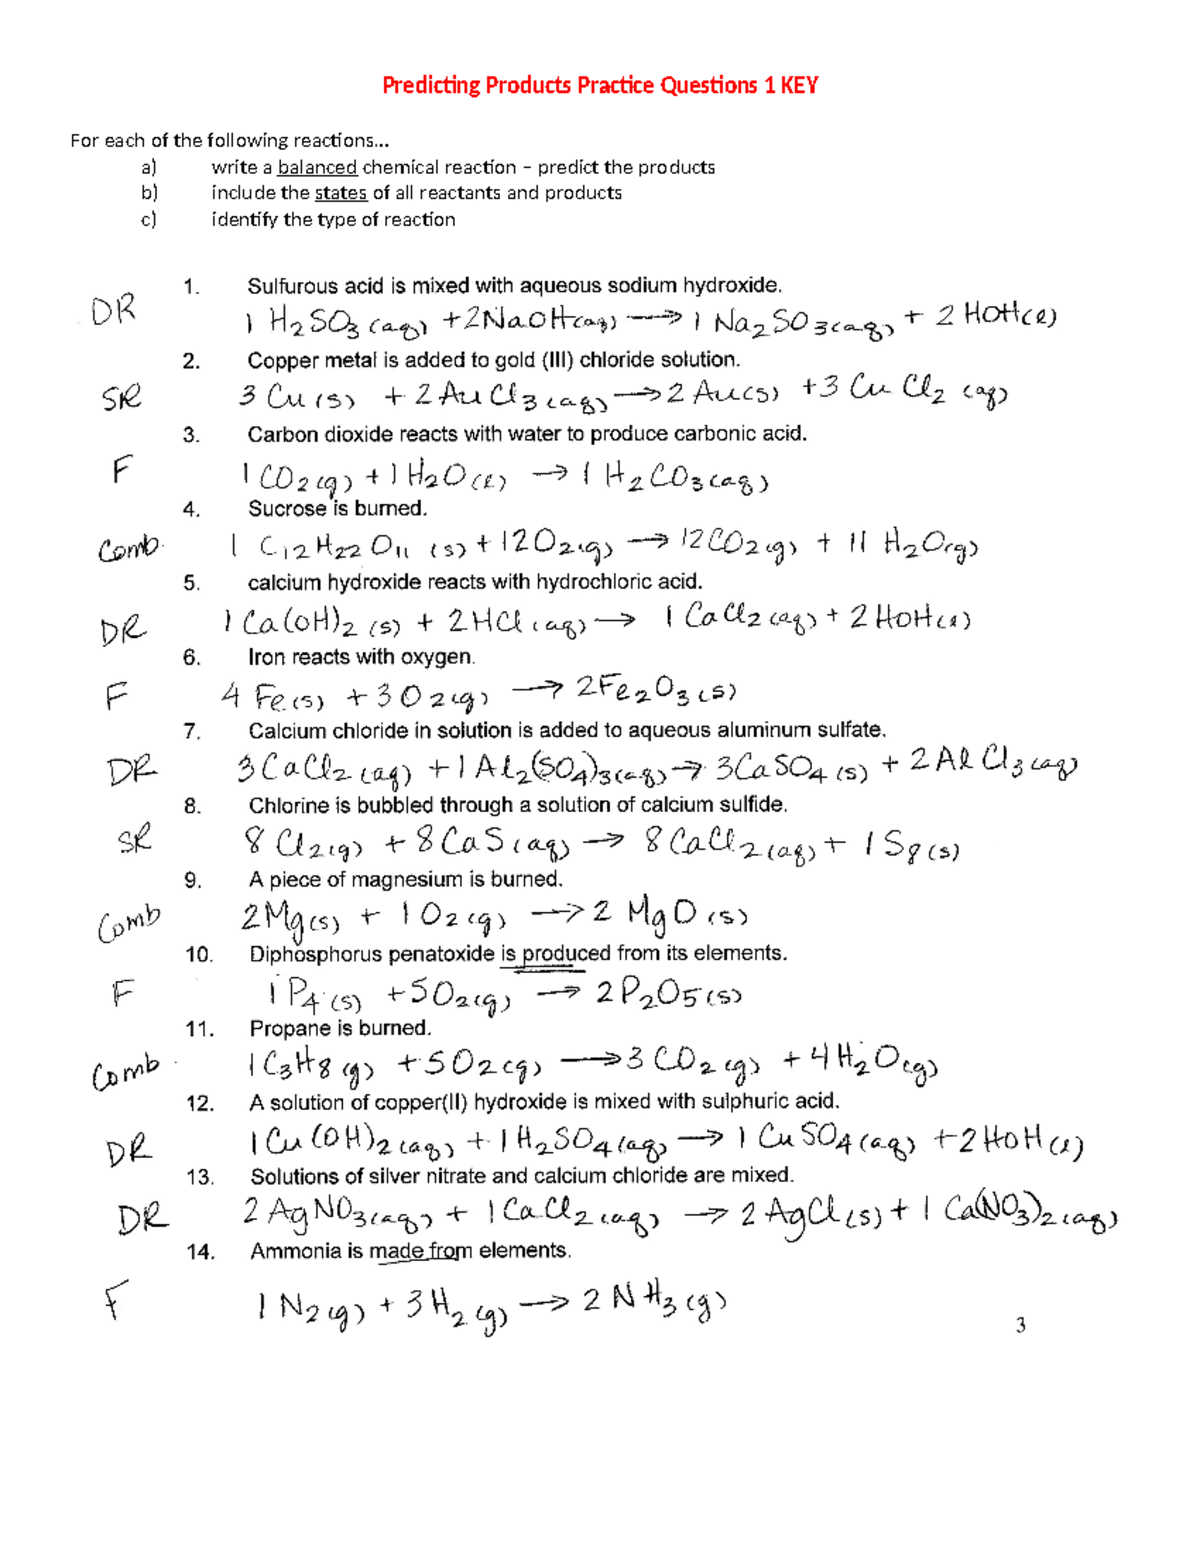 Predicting Products Practice Questions 1 KEY
For each of the following reactions...
a) write a balanced chemical reaction – predict the products
b) include the states of all reactants and products
c) identify the type of reaction
1. Sulfurous acid is mixed with aqueous sodium hydroxide.
DR 1 H2SO3(aq) + 2NaOH(aq) → 1 Na2SO3(aq) + 2 HOH(l)
2. Copper metal is added to gold (III) chloride solution.
SR 3 Cu(s) + 2 AuCl3(aq) → 2 Au(s) + 3 CuCl2(aq)
3. Carbon dioxide reacts with water to produce carbonic acid.
F 1 CO2(g) + 1 H2O(l) → 1 H2CO3(aq)
4. Sucrose is burned.
Comb. 1 C12H22O11(s) + 12O2(g) → 12CO2(g) + 11 H2O(g)
5. calcium hydroxide reacts with hydrochloric acid.
DR 1 Ca(OH)2(s) + 2HCl(aq) → 1 CaCl2(aq) + 2 HOH(l)
6. Iron reacts with oxygen.
F 4 Fe(s) + 3 O2(g) → 2Fe2O3(s)
7. Calcium chloride in solution is added to aqueous aluminum sulfate.
DR 3 CaCl2(aq) + 1 Al2(SO4)3(aq) → 3CaSO4(s) + 2 AlCl3(aq)
8. Chlorine is bubbled through a solution of calcium sulfide.
SR 8 Cl2(g) + 8 CaS(aq) → 8 CaCl2(aq) + 1 S8(s)
9. A piece of magnesium is burned.
Comb 2Mg(s) + 1 O2(g) → 2 MgO(s)
10. Diphosphorus penatoxide is produced from its elements.
F 1 P4(s) + 5O2(g) → 2P2O5(s)
11. Propane is burned.
Comb 1 C3H8(g) + 5O2(g) → 3 CO2(g) + 4H2O(g)
12. A solution of copper(II) hydroxide is mixed with sulphuric acid.
DR 1 Cu(OH)2(aq) + 1 H2SO4(aq) → 1 CuSO4(aq) + 2HOH(l)
13. Solutions of silver nitrate and calcium chloride are mixed.
DR 2 AgNO3(aq) + 1 CaCl2(aq) → 2 AgCl(s) + 1 Ca(NO3)2(aq)
14. Ammonia is made from elements.
F 1 N2(g) + 3H2(g) → 2 NH3(g)
3